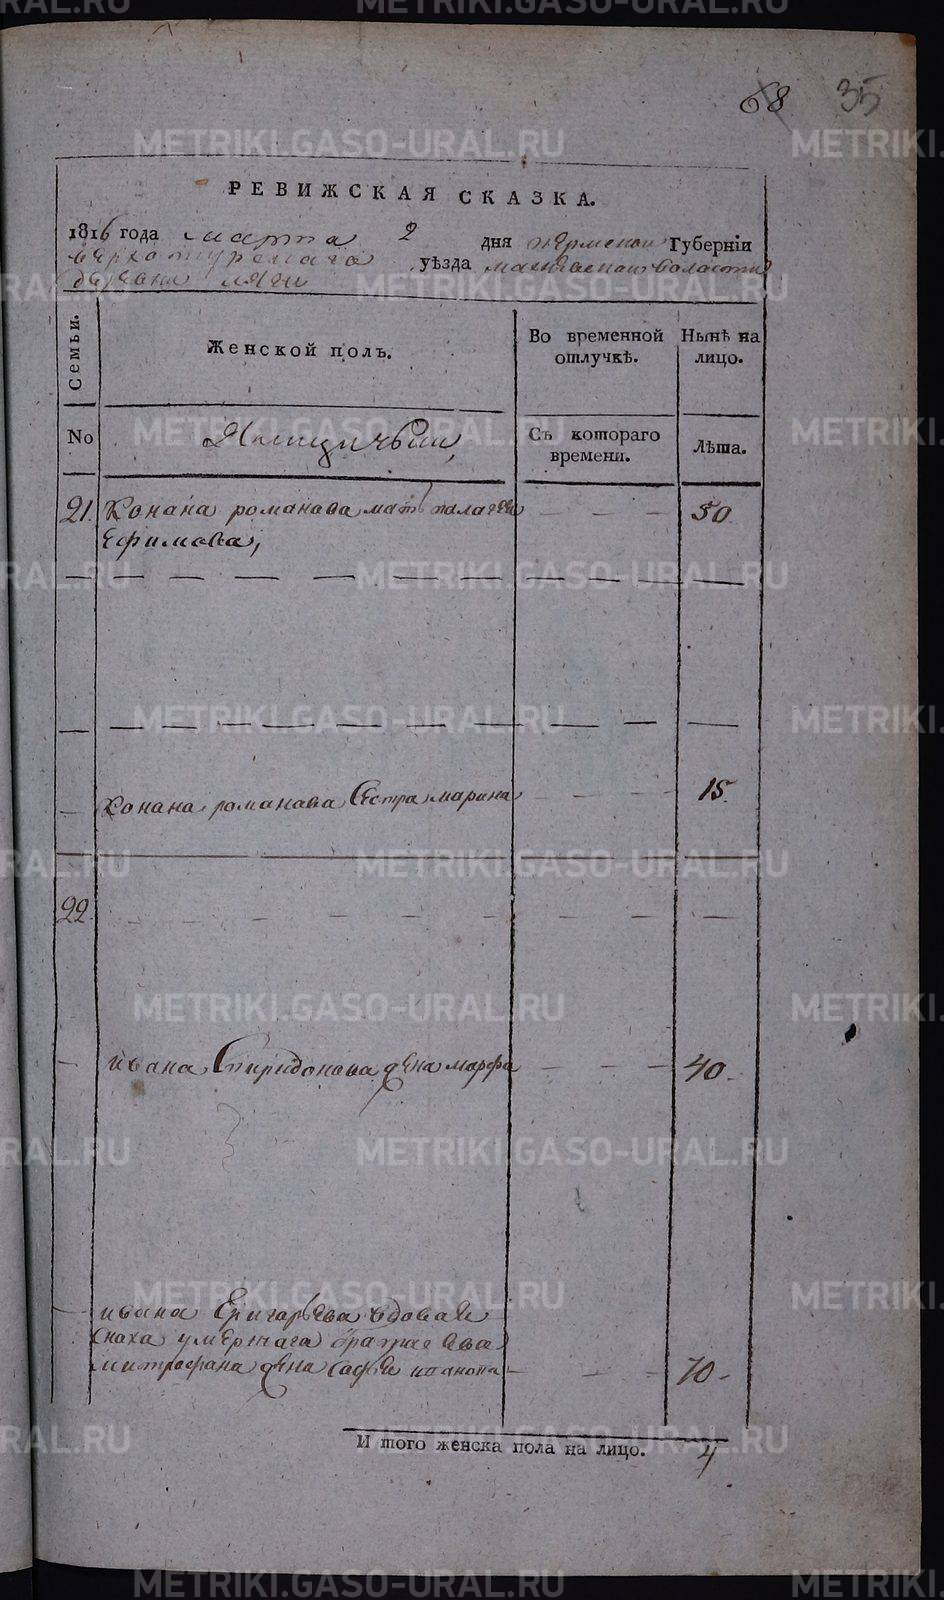 68 35
РЕВИЖСКАЯ СКАЗКА.
1816 года марта 2 дня пермской Губерніи
верхотурскаго уѣзда волости
деревни
Семьи.
Женской полъ.
Во временной отлучкѣ.
Нынѣ на лицо.
No
Ямщичьи,
Съ котораго времени.
Лѣта.
21. Конана романава мать палагея 50.
ефимова,
Конана романава Сестра марина 15.
22
ивана Спиридонава жена марфа 40.
ивана Григорьева вдовая
сноха умершаго брата ево
митрофана жена Софья 70.
И того женска пола на лицо. 4
METRIKI.GASO-URAL.RU